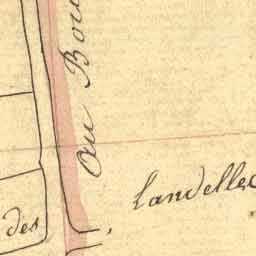 au Bou
landellec
des